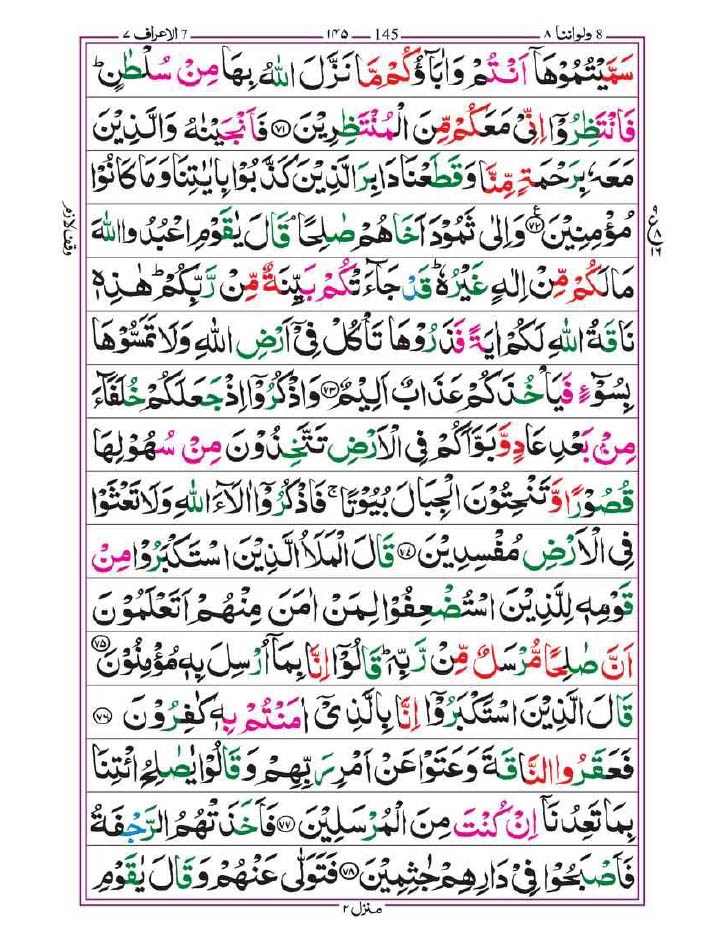 8 ولواننا ٨ — 145 — ١٤٥ — 7 الاعراف ٧
سَمَّيْتُمُوْهَاۤ اَنْتُمْ وَاٰبَآؤُكُمْ مَّا نَزَّلَ اللّٰهُ بِهَا مِنْ سُلْطٰنٍ ؕ
فَانْتَظِرُوْۤا اِنِّیْ مَعَكُمْ مِّنَ الْمُنْتَظِرِیْنَ ﴿۷۱﴾ فَاَنْجَیْنٰهُ وَالَّذِیْنَ
مَعَهٗ بِرَحْمَةٍ مِّنَّا وَقَطَعْنَا دَابِرَ الَّذِیْنَ كَذَّبُوْا بِاٰیٰتِنَا وَمَا كَانُوْا
مُؤْمِنِیْنَ ﴿۷۲﴾ وَاِلٰی ثَمُوْدَ اَخَاهُمْ صٰلِحًا ۘ قَالَ یٰقَوْمِ اعْبُدُوا اللّٰهَ
مَا لَكُمْ مِّنْ اِلٰهٍ غَیْرُهٗ ؕ قَدْ جَآءَتْكُمْ بَیِّنَةٌ مِّنْ رَّبِّكُمْ ؕ هٰذِهٖ
نَاقَةُ اللّٰهِ لَكُمْ اٰیَةً فَذَرُوْهَا تَاْكُلْ فِیْۤ اَرْضِ اللّٰهِ وَلَا تَمَسُّوْهَا
بِسُوْٓءٍ فَیَاْخُذَكُمْ عَذَابٌ اَلِیْمٌ ﴿۷۳﴾ وَاذْكُرُوْۤا اِذْ جَعَلَكُمْ خُلَفَآءَ
مِنْۢ بَعْدِ عَادٍ وَّبَوَّاَكُمْ فِی الْاَرْضِ تَتَّخِذُوْنَ مِنْ سُهُوْلِهَا
قُصُوْرًا وَّتَنْحِتُوْنَ الْجِبَالَ بُیُوْتًا ۚ فَاذْكُرُوْۤا اٰلَآءَ اللّٰهِ وَلَا تَعْثَوْا
فِی الْاَرْضِ مُفْسِدِیْنَ ﴿۷۴﴾ قَالَ الْمَلَاُ الَّذِیْنَ اسْتَكْبَرُوْا مِنْ
قَوْمِهٖ لِلَّذِیْنَ اسْتُضْعِفُوْا لِمَنْ اٰمَنَ مِنْهُمْ اَتَعْلَمُوْنَ
اَنَّ صٰلِحًا مُّرْسَلٌ مِّنْ رَّبِّهٖ ؕ قَالُوْۤا اِنَّا بِمَاۤ اُرْسِلَ بِهٖ مُؤْمِنُوْنَ ﴿۷۵﴾
قَالَ الَّذِیْنَ اسْتَكْبَرُوْۤا اِنَّا بِالَّذِیْۤ اٰمَنْتُمْ بِهٖ كٰفِرُوْنَ ﴿۷۶﴾
فَعَقَرُوا النَّاقَةَ وَعَتَوْا عَنْ اَمْرِ رَبِّهِمْ وَقَالُوْا یٰصٰلِحُ ائْتِنَا
بِمَا تَعِدُنَاۤ اِنْ كُنْتَ مِنَ الْمُرْسَلِیْنَ ﴿۷۷﴾ فَاَخَذَتْهُمُ الرَّجْفَةُ
فَاَصْبَحُوْا فِیْ دَارِهِمْ جٰثِمِیْنَ ﴿۷۸﴾ فَتَوَلّٰی عَنْهُمْ وَقَالَ یٰقَوْمِ
منزل ۲
وقف لازم
ع ٨ ١٦